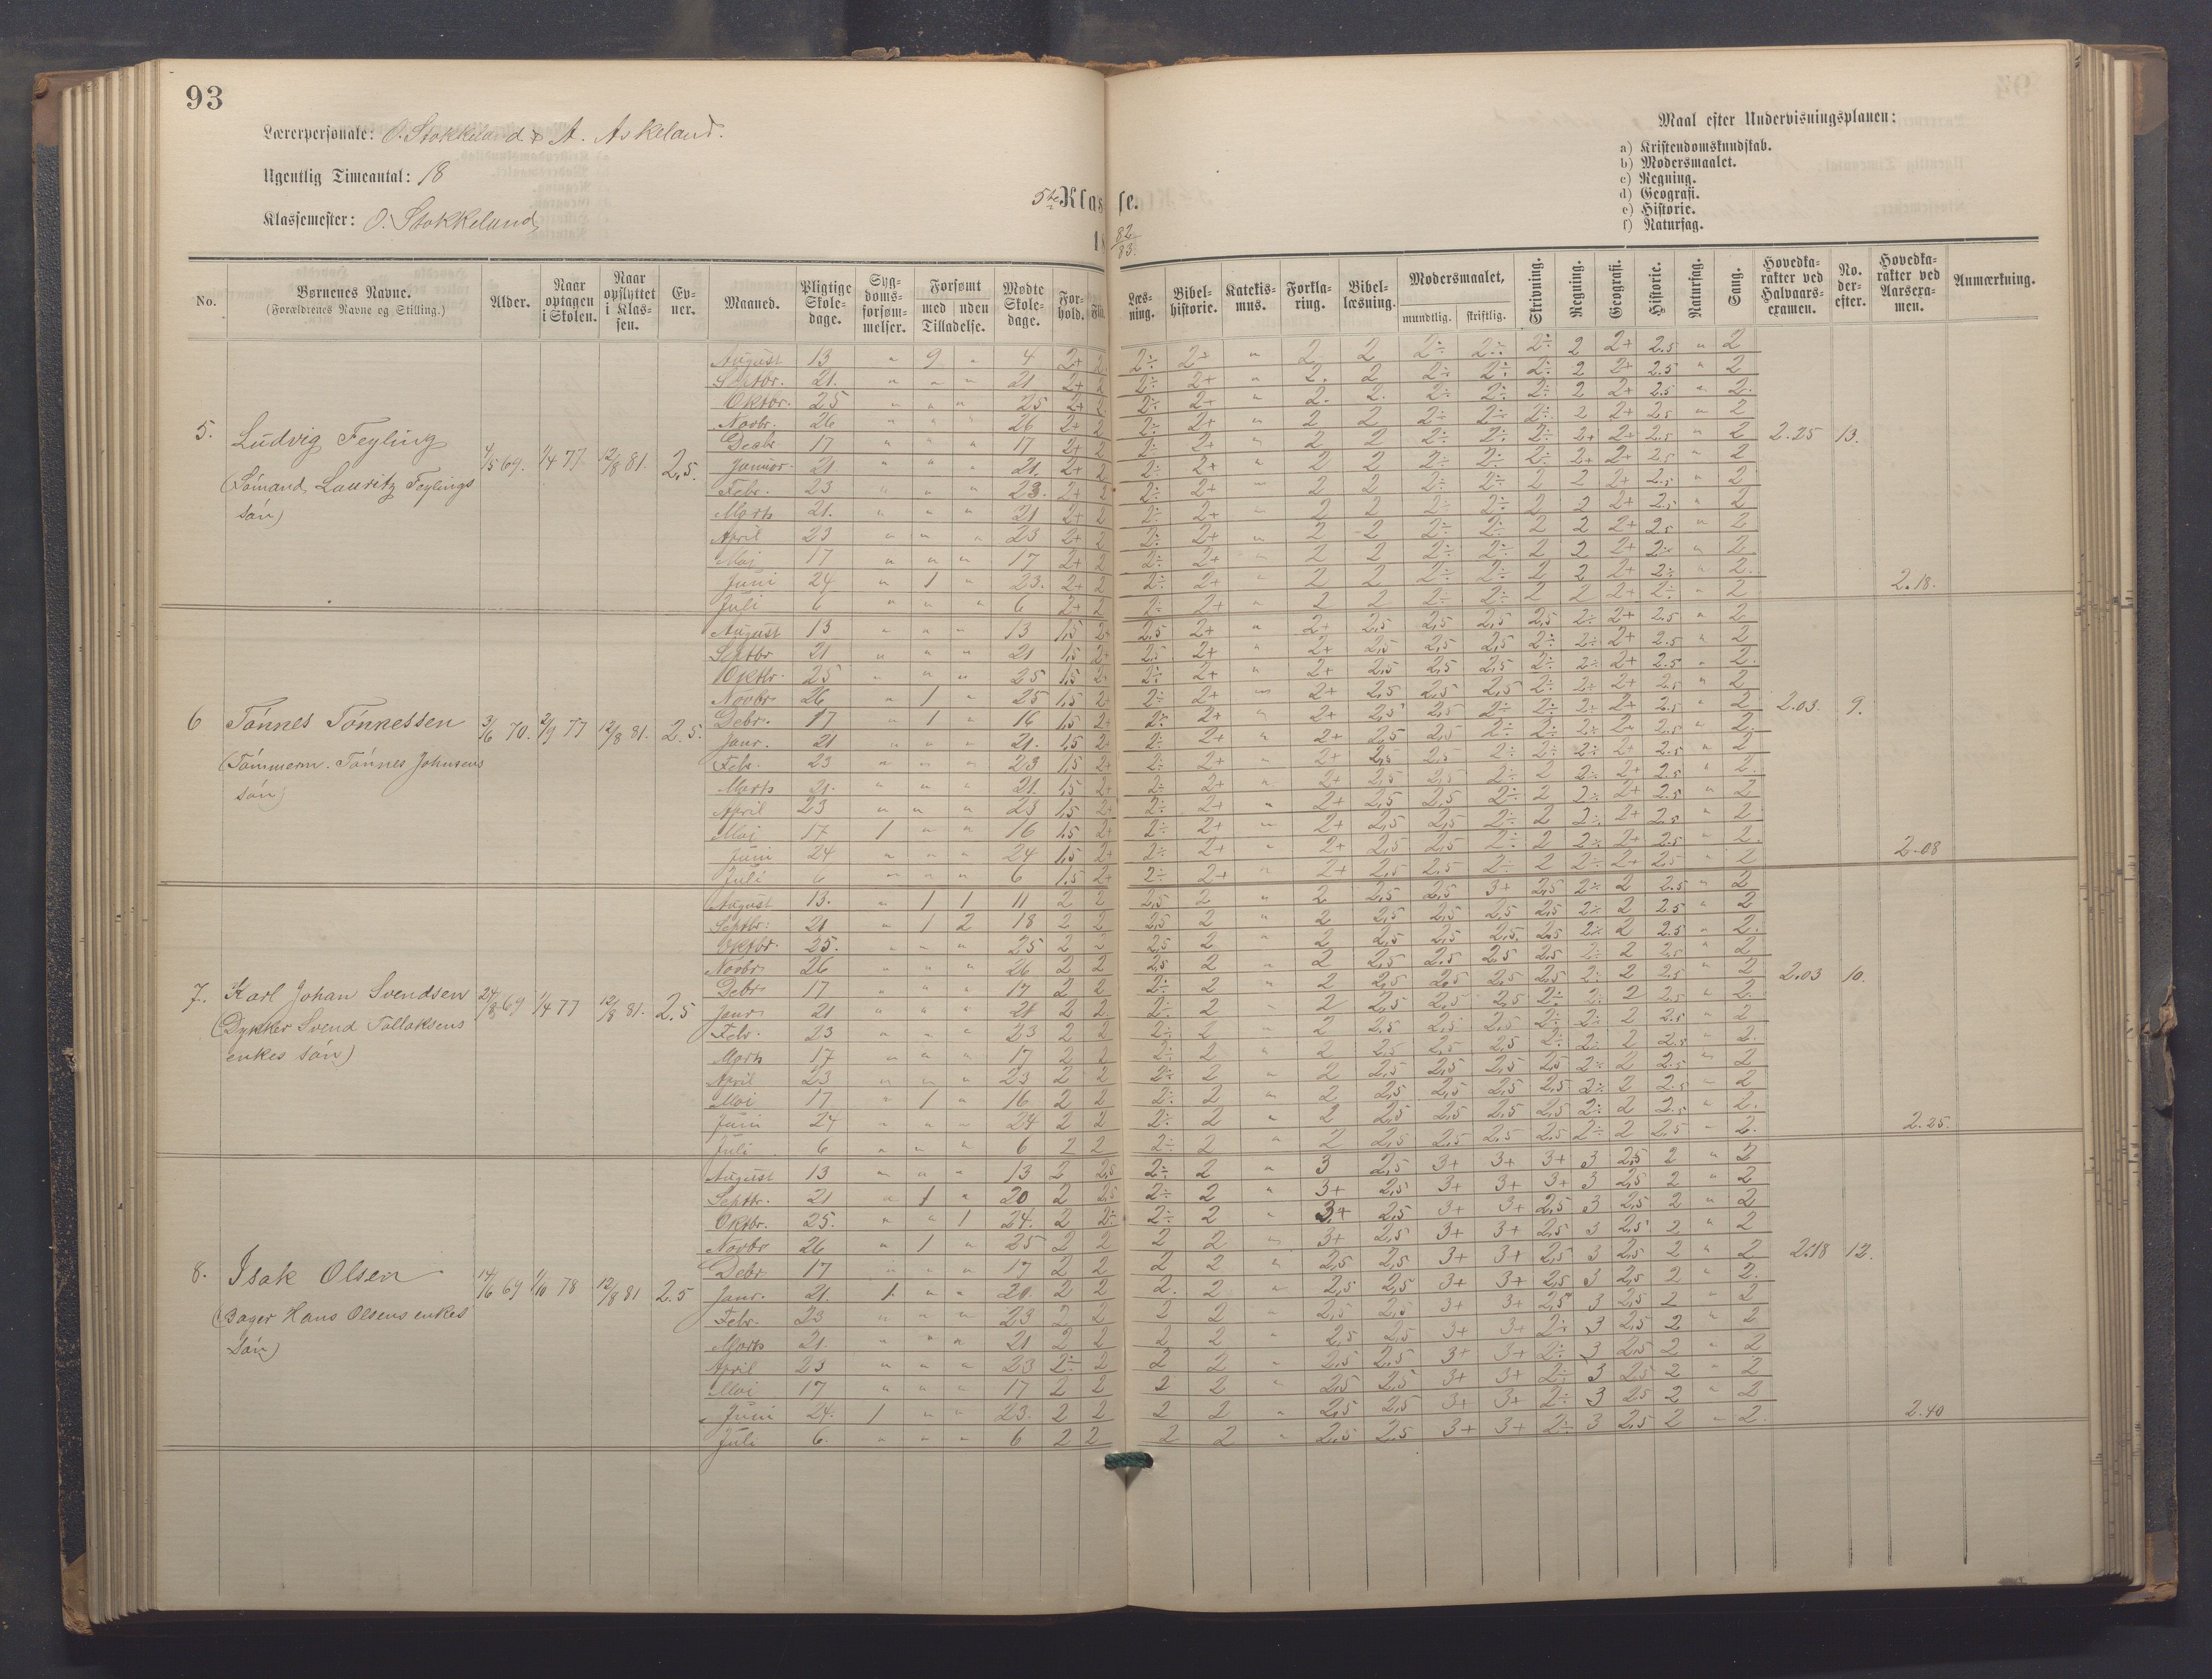 93
Lærerpersonale: O. Stokkeland & A. Askeland.
Ugentlig Timeantal: 18
Klassemester: O. Stokkeland
5te Klasse.
18 82/83.
Maal efter Undervisningsplanen:
a) Kristendomskundskab.
b) Modersmaalet.
c) Regning.
d) Geografi.
e) Historie.
f) Naturfag.
No. Børnenes Navne. (Forældrenes Navne og Stilling.) Alder. Naar optagen i Skolen. Naar opflyttet i Klassen. Evner. Maaned. Pligtige Skoledage. Sygdomsforsømmelser. Forsømt med uden Tilladelse. Mødte Skoledage. Forhold. Læsning. Bibelhistorie. Katekismus. Forklaring. Bibellæsning. Modersmaalet, mundtlig. skriftlig. Skrivning. Regning. Geografi. Historie. Naturfag. Sang. Hovedkarakter ved Halvaarsexamen. No. derefter. Hovedkarakter ved Aarsexamen. Anmærkning.
5. Ludvig Feyling
(Sømand, Lauritz Feylings
søn)
4/5 69. 1/4 77 12/8 81. 2,5.
August 13 " 9 " 4 2+ 2 2÷ 2+ " 2 2 2÷ 2÷ 2÷ 2 2+ 2.5 " 2
Septbr. 21. " " " 21 2+ 2 2÷ 2+ " 2. 2 2÷ 2÷ 2÷ 2 2+ 2.5 " 2
Oktbr. 25 " " " 25 2+ 2 2÷ 2+ " 2. 2. 2÷ 2÷ 2÷ 2 2+ 2.5 " 2.
Novbr. 26 " " " 26 2+ 2 2÷ 2+ " 2 2 2÷ 2÷ 2÷ 2 2+ 2.5 " 2
Decbr. 17 " " " 17 2+ 2 2÷ 2+ " 2 2 2÷ 2÷ 2÷ 2+ 2+ 2.5 " 2 2.25 13.
Januar. 21. " " " 21. 2+ 2 2÷ 2+ " 2 2 2÷ 2÷ 2÷ 2+ 2+ 2.5 " 2
Febr. 23 " " " 23. 2+ 2 2÷ 2+ " 2 2 2÷ 2÷ 2 2 2+ 2.5 " 2
Marts 21. " " " 21 2+ 2 2÷ 2+ " 2 2 2÷ 2÷ 2 2 2+ 2.5 " 2
April 23 " " " 23 2+ 2 2÷ 2+ " 2 2 2÷ 2÷ 2 2 2+ 2.5 " 2
Mai 17 " " " 17 2+ 2 2÷ 2+ " 2 2 2÷ 2÷ 2 2 2+ 2÷ " 2
Juni 24 " 1 " 23. 2+ 2 2÷ 2+ " 2 2 2÷ 2÷ 2 2 2+ 2÷ " 2. 2.18.
Juli 6 " " " 6 2+ 2 2÷ 2+ " 2 2 2÷ 2÷ 2 2 2+ 2÷ " 2
6 Tønnes Tønnessen
(Tømmerm. Tønnes Johnsens
søn)
3/6 70. 2/9 77 12/8 81. 2.5.
August 13 " " " 13 1,5 2+ 2.5 2+ " 2+ 2,5 2,5 2,5 2,5 2÷ 2+ 2.5 " 2
Septbr 21 " " " 21 1,5 2+ 2.5 2+ " 2+ 2,5 2,5 2,5 2÷ 2÷ 2+ 2.5 " 2
Oktbr. 25 " " " 25 1,5 2+ 2÷ 2+ " 2+ 2,5 2,5 2,5 2÷ 2÷ 2+ 2.5 " 2.
Novbr. 26 " 1 " 25 1,5 2+ 2÷ 2+ " 2+ 2,5 2,5 2,5 2÷ 2÷ 2+ 2.5 " 2
Debr. 17 " 1 " 16 1,5 2+ 2÷ 2+ " 2+ 2,5 2,5 2÷ 2÷ 2÷ 2+ 2.5 " 2 2.03. 9.
Janr. 21 " " " 21. 1,5 2+ 2÷ 2+ " 2+ 2,5 2,5 2÷ 2÷ 2÷ 2+ 2.5 " 2.
Febr. 23 " " " 23 1,5 2+ 2÷ 2+ " 2+ 2,5 2,5 2÷ 2÷ 2÷ 2+ 2.5 " 2
Marts 21. " " " 21. 1,5 2+ 2÷ 2+ " 2+ 2,5 2,5 2÷ 2 2÷ 2+ 2.5 " 2.
April 23 " " " 23 1,5 2+ 2÷ 2+ " 2+ 2,5 2,5 2÷ 2 2÷ 2+ 2.5 " 2
Mai 17 1 " " 16 1,5 2+ 2÷ 2+ " 2+ 2,5 2,5 2÷ 2 2÷ 2+ 2.5 " 2
Juni 24 " " " 24 1,5 2+ 2÷ 2+ " 2+ 2,5 2,5 2÷ 2 2÷ 2+ 2.5 " 2. 2.08
Juli 6 " " " 6 1,5 2+ 2÷ 2+ " 2+ 2,5 2.5 2÷ 2 2÷ 2+ 2.5 " 2
7. Karl Johan Svendsen
(Dykker Svend Tollaksens
enkes søn)
24/8 69 1/4 77 12/8 81. 2.5
August 13. " 1 1 11 2 2 2,5 2 " 2 2,5 2,5 3+ 2,5 2÷ 2 2.5 " 2
Septbr. 21 " 1 2 18 2 2 2,5 2 " 2 2,5 2,5 2,5 2,5 2÷ 2 2.5 " 2
Oktbr. 25. " " " 25 2 2 2,5 2 " 2 2,5 2,5 2,5. 2,5 2÷ 2 2.5 " 2.
Novbr. 26 " " " 26 2 2 2,5 2 " 2 2,5 2.5 2.5 2,5 2÷ 2 2.5 " 2
Debr 17 " " " 17 2 2 2÷ 2 " 2 2,5 2,5 2,5 2,5 2÷ 2 2.5 " 2 2.03 10.
Janr 21 " " " 21 2 2 2÷ 2 " 2 2,5 2,5 2,5 2÷ 2÷ 2 2.5 " 2.
Febr. 23 " " " 23 2 2 2÷ 2 " 2 2,5 2,5 2,5 2÷ 2÷ 2 2.5 " 2
Marts 17 " " " 17 2 2 2÷ 2 " 2 2,5 2,5 2,5 2÷ 2÷ 2 2.5 " 2.
April 23 " " " 23 2 2 2÷ 2 " 2 2,5 2,5 2,5 2,5 2÷ 2 2.5 " 2
Mai 17 " 1 " 16 2 2 2÷ 2 " 2 2,5 2,5 2,5 2,5 2÷ 2 2.5 " 2
Juni 24 " " " 24 2 2 2÷ 2 " 2 2,5 2,5 2,5 2,5 2÷ 2 2.5 " 2. 2.25.
Juli 6 " " " 6 2 2 2÷ 2 " 2 2,5 2,5 2.5 2,5 2÷ 2 2.5 " 2.
8. Isak Olsen
(Bager Hans Olsens enkes
søn)
14/6 69 1/10 78 12/8 81 2.5
August 13 " " " 13 2 2,5 2÷ 2 " 3 2,5 3+ 3+ 3+ 3 2,5 2 " 2
Septbr. 21 " 1 " 20 2 2,5 2÷ 2 " 3+ 2,5 3+ 3+ 3+ 3 2,5 2 " 2
Oktbr. 25. " " 1 24. 2 2÷ 2÷ 2 " 3+ 2,5 3+ 3+ 2,5 3 2,5 2 " 2
Novbr 26 " 1 " 25 2 2 2 2 " 3+ 2,5 3+ 3+ 2,5 3 2,5 2 " 2
Debr 17 " " " 17 2 2 2 2 " 2,5 2,5 3+ 3+ 2,5 3 2,5 2 " 2 2.18 12.
Janr. 21. 1 " " 20 2 2 2. 2 " 2,5 2,5 3+ 3+ 2,5 3 2,5 2 " 2.
Febr. 23 " " " 23 2 2 2 2 " 2,5 2,5 3+ 3+ 2,5 3 2,5 2 " 2
Marts 21. " " " 21 2 2 2 2 " 2,5 2,5 3+ 3+ 2÷ 3 2,5 2 " 2
April 23 " " " 23 2÷ 2 2 2 " 2,5 2,5 3+ 3+ 2÷ 3 2,5 2 " 2
Mai 17 " " " 17 2 2 2 2 " 2,5 2,5 3+ 3+ 2÷ 3 2,5 2 " 2
Juni 24. 1 " " 23. 2 2 2 2 " 2,5 2,5 3+ 3+ 2÷ 3 2,5 2 " 2 2.40
Juli 6. " " " 6 2 2 2 2 " 2,5 2.5 3+ 3+ 2÷ 3 2,5 2 " 2.